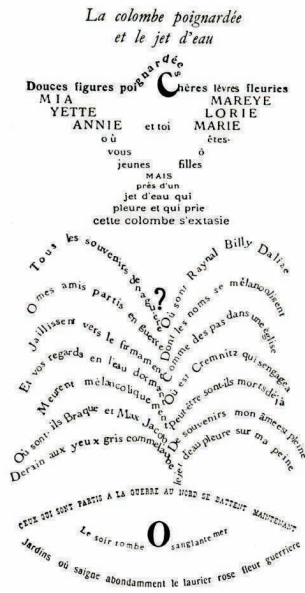 La colombe poignardée
et le jet d'eau
Douces figures poignardées Chères lèvres fleuries
MIA MAREYE
YETTE LORIE
ANNIE et toi MARIE
où êtes-
vous ô
jeunes filles
MAIS
près d'un
jet d'eau qui
pleure et qui prie
cette colombe s'extasie
?
Tous les souvenirs de naguère
O mes amis partis en guerre
Jaillissent vers le firmament
Et vos regards en l'eau dormant
Meurent mélancoliquement
Où sont-ils Braque et Max Jacob
Derain aux yeux gris comme l'aube
Où sont Raynal Billy Dalize
Dont les noms se mélancolisent
Comme des pas dans une église
Où est Cremnitz qui s'engagea
Peut-être sont-ils morts déjà
De souvenirs mon âme est pleine
Le jet d'eau pleure sur ma peine
CEUX QUI SONT PARTIS A LA GUERRE AU NORD SE BATTENT MAINTENANT
Le soir tombe O sanglante mer
Jardins où saigne abondamment le laurier rose fleur guerrière